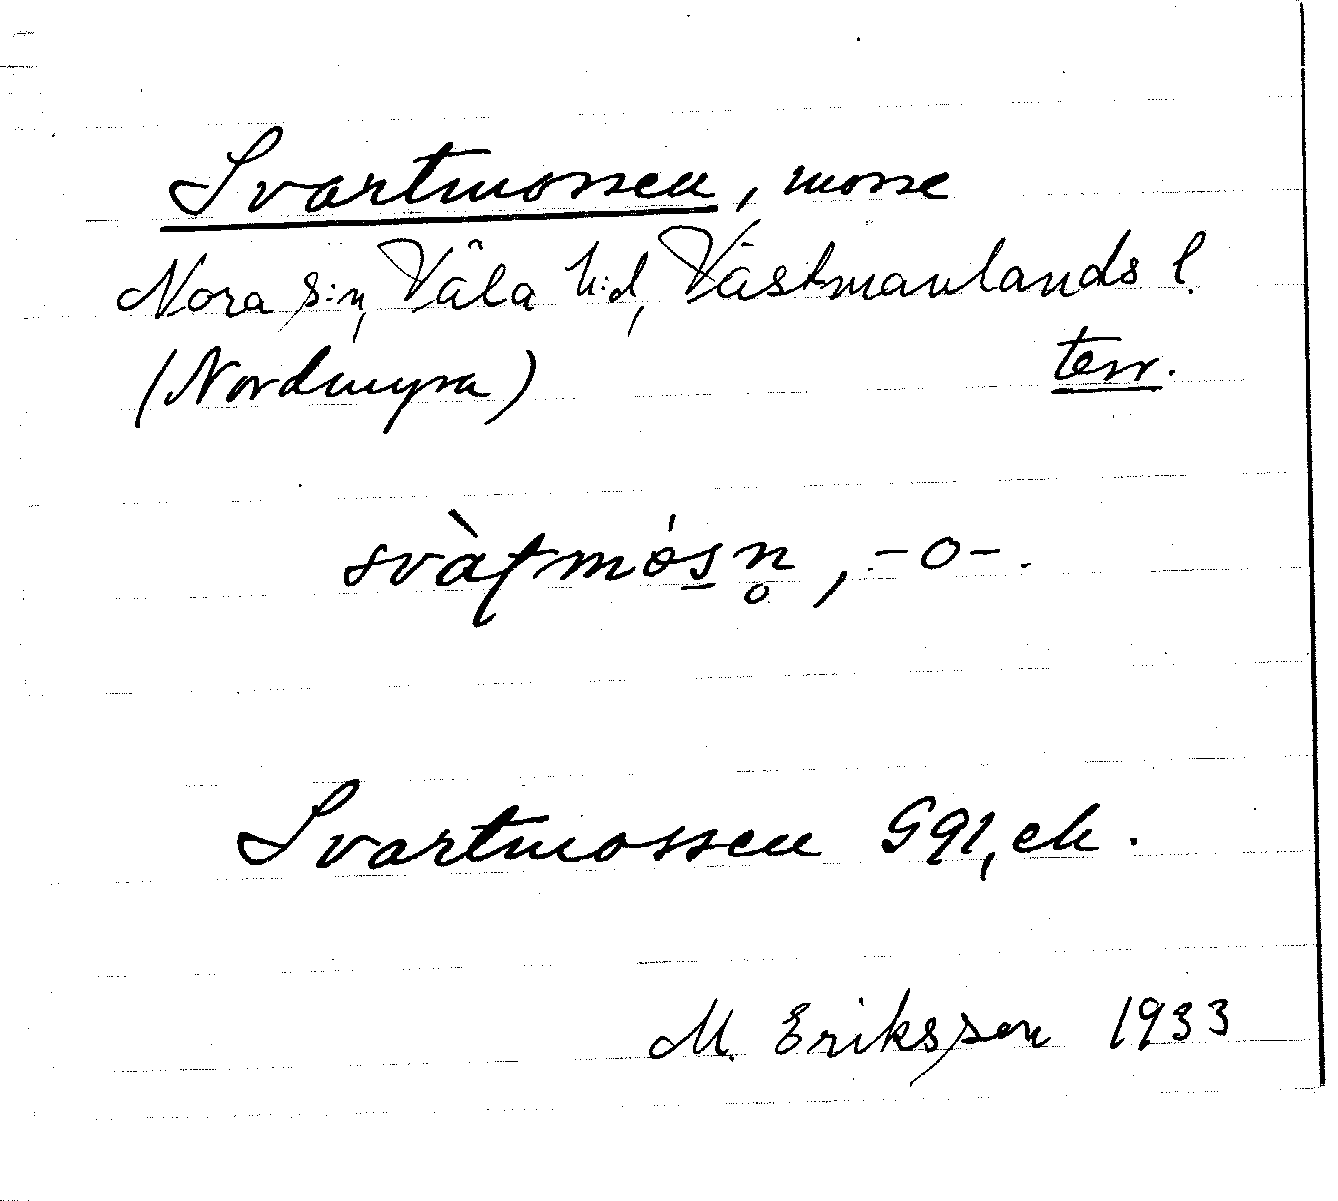 Svartmossen, mosse
Nora s:n, Våla h:d, Västmanlands l.
(Nordmyra) terr.
svàƭmósn̥, -o-.
Svartmossen G91, ek.
M. Eriksson 1933